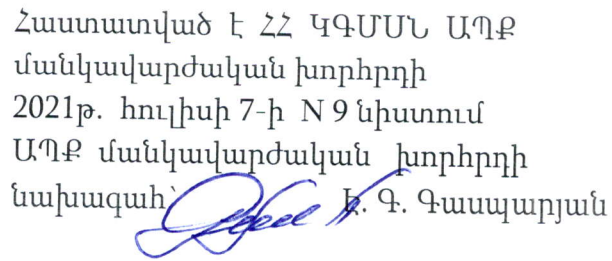 Հաստատված է ՀՀ ԿԳՄՍՆ ԱՊՔ
մանկավարժական խորհրդի
2021թ. հուլիսի 7-ի N 9 նիստում
ԱՊՔ մանկավարժական խորհրդի
նախագահ՝ Է. Գ. Գասպարյան